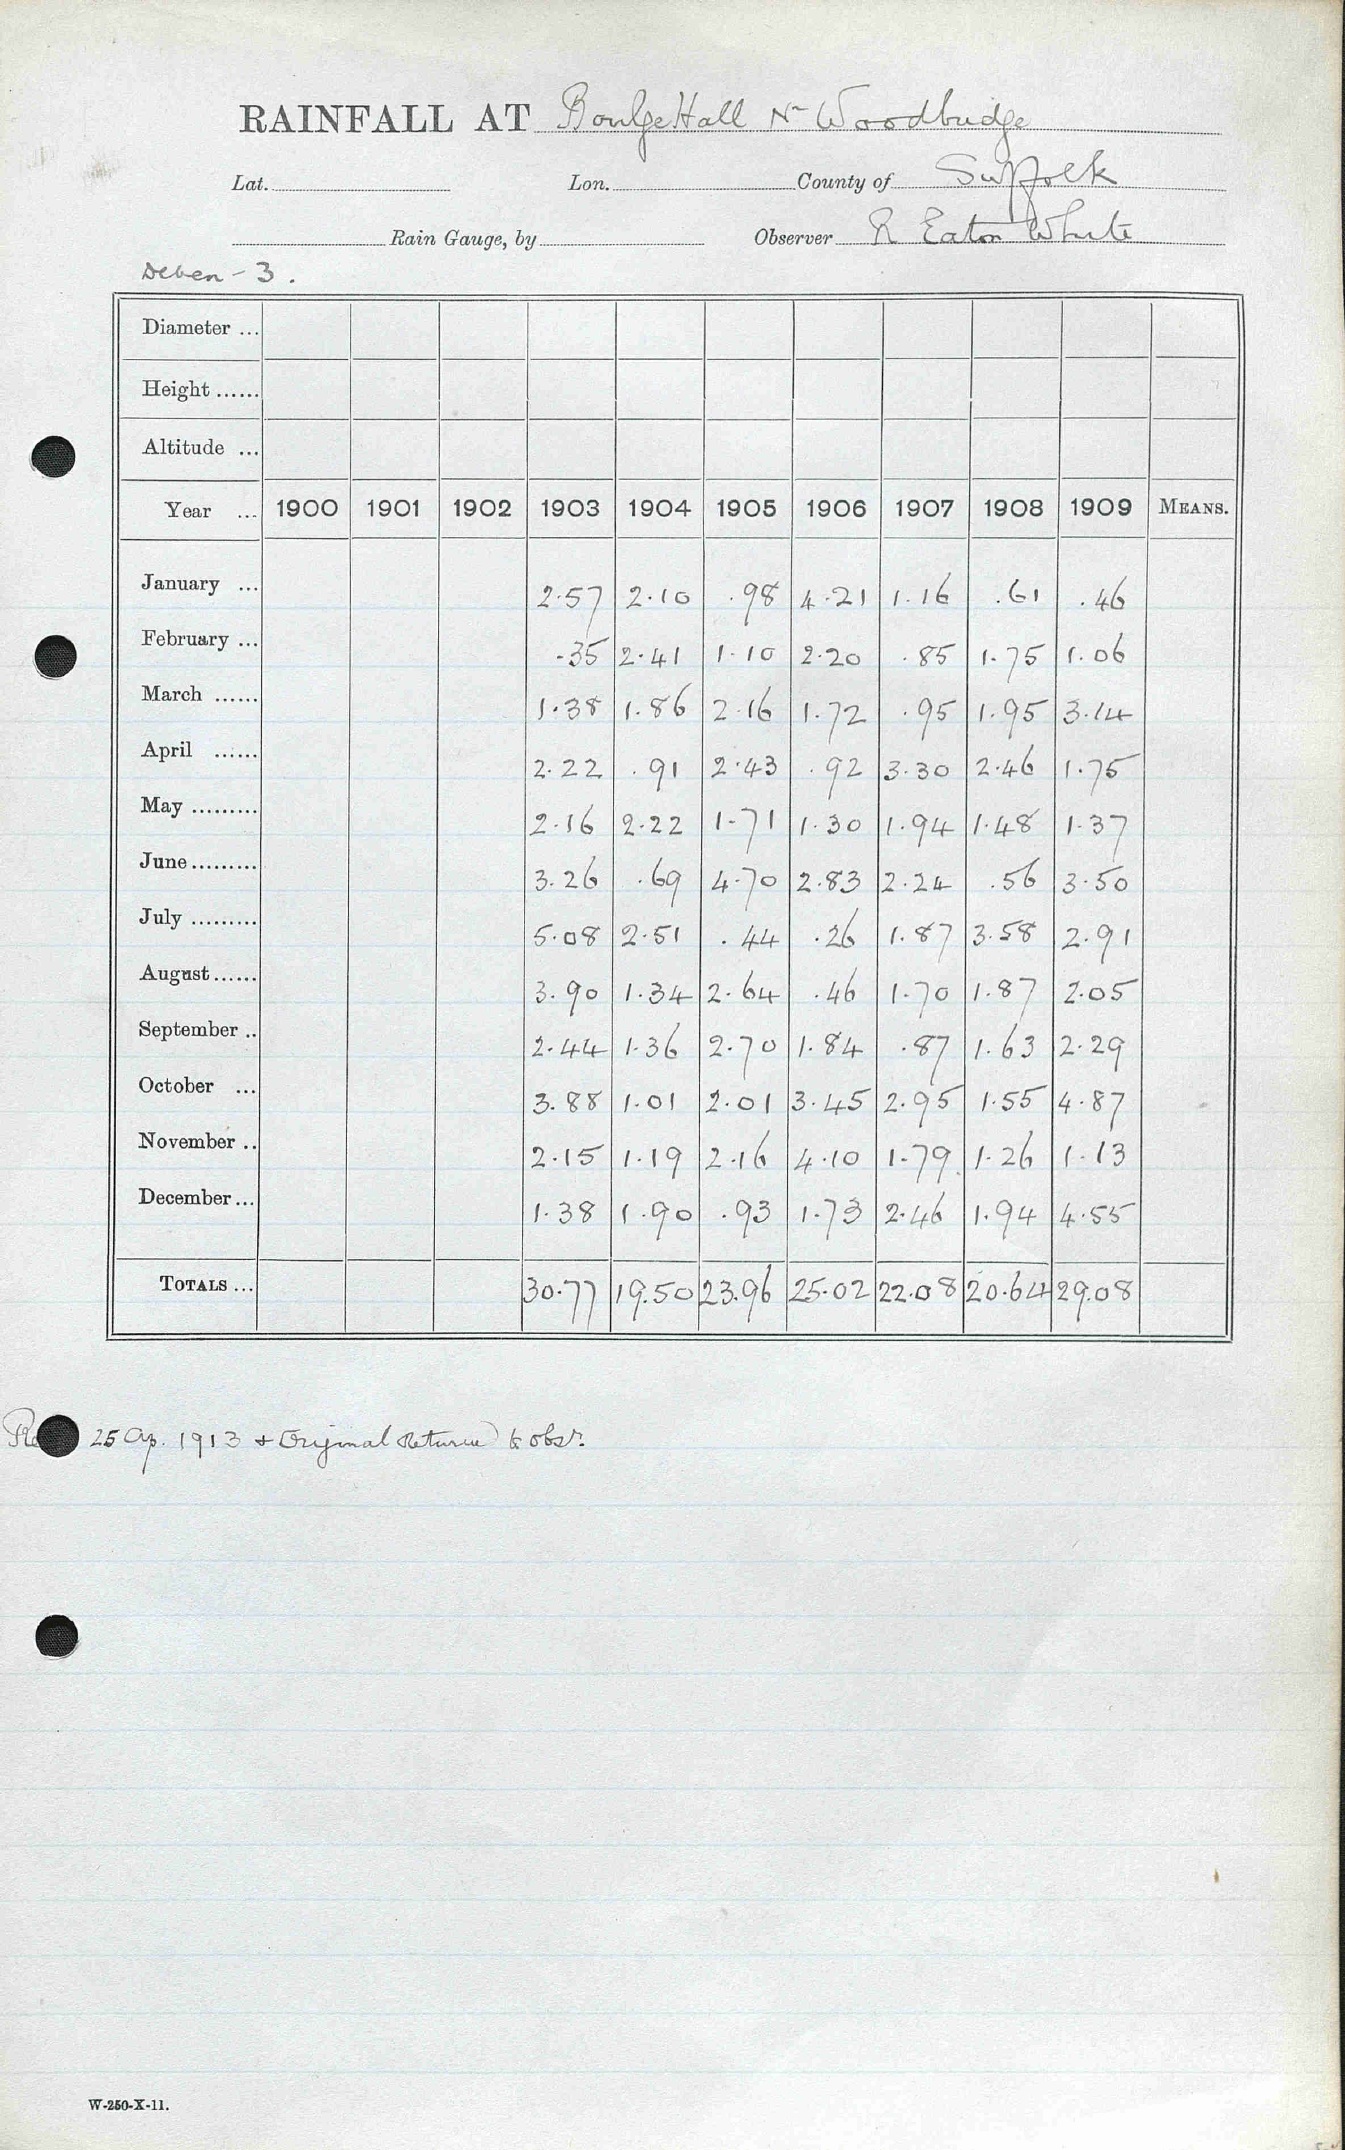 RAINFALL AT Boulge Hall Nr Woodbridge
Lat. Lon. County of Suffolk
Rain Gauge, by Observer R Eaton White
Deben - 3.
Diameter ...
Height ......
Altitude ...
Year ... 1900 1901 1902 1903 1904 1905 1906 1907 1908 1909 MEANS.
January ... 2.57 2.10 .98 4.21 1.16 .61 .46
February ... .35 2.41 1.10 2.20 .85 1.75 1.06
March ...... 1.38 1.86 2.16 1.72 .95 1.95 3.14
April ...... 2.22 .91 2.43 .92 3.30 2.46 1.75
May ......... 2.16 2.22 1.71 1.30 1.94 1.48 1.37
June ......... 3.26 .69 4.70 2.83 2.24 .56 3.50
July ......... 5.08 2.51 .44 .26 1.87 3.58 2.91
August ...... 3.90 1.34 2.64 .46 1.70 1.87 2.05
September .. 2.44 1.36 2.70 1.84 .87 1.63 2.29
October ... 3.88 1.01 2.01 3.45 2.95 1.55 4.87
November .. 2.15 1.19 2.16 4.10 1.79 1.26 1.13
December ... 1.38 1.90 .93 1.73 2.46 1.94 4.55
TOTALS ... 30.77 19.50 23.96 25.02 22.08 20.64 29.08
25 Ap. 1913 + Original Returned to obsr.
W-250-X-11.